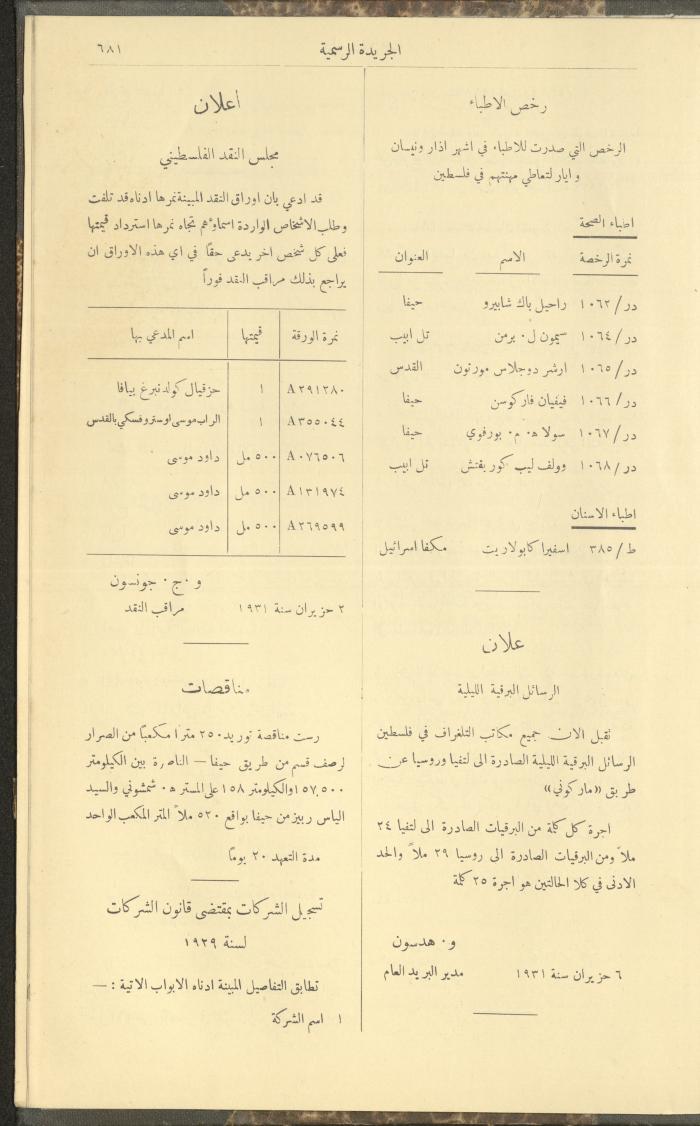 الجريدة الرسمية
٦٨١
رخص الاطباء
الرخص التي صدرت للاطباء في اشهر اذار ونيسان
وايار لتعاطي مهنتهم في فلسطين
اطباء الصحة
نمرة الرخصة الاسم العنوان
در/١٠٦٢ راحيل باك شابيرو حيفا
در/١٠٦٤ سيمون ل. برمن تل ابيب
در/١٠٦٥ ارشر دوجلاس مورتون القدس
در/١٠٦٦ فيفيان فاركوسن حيفا
در/١٠٦٧ سولا ه. م. بورفوي حيفا
در/١٠٦٨ وولف ليب كوربفتش تل ابيب
اطباء الاسنان
ط/٣٨٥ اسفيرا كابولاريت مكفا اسرائيل
علان
الرسائل البرقية الليلية
تقبل الان جميع مكاتب التلغراف في فلسطين
الرسائل البرقية الليلية الصادرة الى لتفيا وروسيا عن
طريق «ماركوني»
اجرة كل كلمة من البرقيات الصادرة الى لتفيا ٢٤
ملاً ومن البرقيات الصادرة الى روسيا ٢٩ ملاً والحد
الادنى في كلا الحالتين هو اجرة ٢٥ كلمة
و. هدسون
٦ حزيران سنة ١٩٣١ مدير البريد العام
أعلان
مجلس النقد الفلسطيني
قد ادعي بان اوراق النقد المبينة نمرها ادناه قد تلفت
وطلب الاشخاص الواردة اسماؤهم تجاه نمرها استرداد قيمتها
فعلى كل شخص اخر يدعى حقاً في اي هذه الاوراق ان
يراجع بذلك مراقب النقد فوراً
نمرة الورقة قيمتها اسم المدعي بها
A٢٩١٢٨٠ ١ حزقيال كولدنبرغ بيافا
A٣٥٥٠٤٤ ١ الراب موسى اوستروفسكي بالقدس
A٠٧٦٥٠٦ ٥٠٠ مل داود موسى
A١٣١٩٧٤ ٥٠٠ مل داود موسى
A٢٦٩٥٩٩ ٥٠٠ مل داود موسى
و.ج. جونسون
٢ حزيران سنة ١٩٣١ مراقب النقد
مناقصات
رست مناقصة توريد ٢٥٠ مترا مكعباً من الصرار
لرصف قسم من طريق حيفا — الناصرة بين الكيلومتر
١٥٧,٥٠٠ والكيلومتر ١٥٨ على المستر ه. شمشوني والسيد
الياس ربيز من حيفا بواقع ٥٢٠ ملاً المتر المكعب الواحد
مدة التعهد ٢٠ يوماً
تسجيل الشركات بمقتضى قانون الشركات
لسنة ١٩٢٩
تطابق التفاصيل المبينة ادناه الابواب الاتية : —
١ اسم الشركة